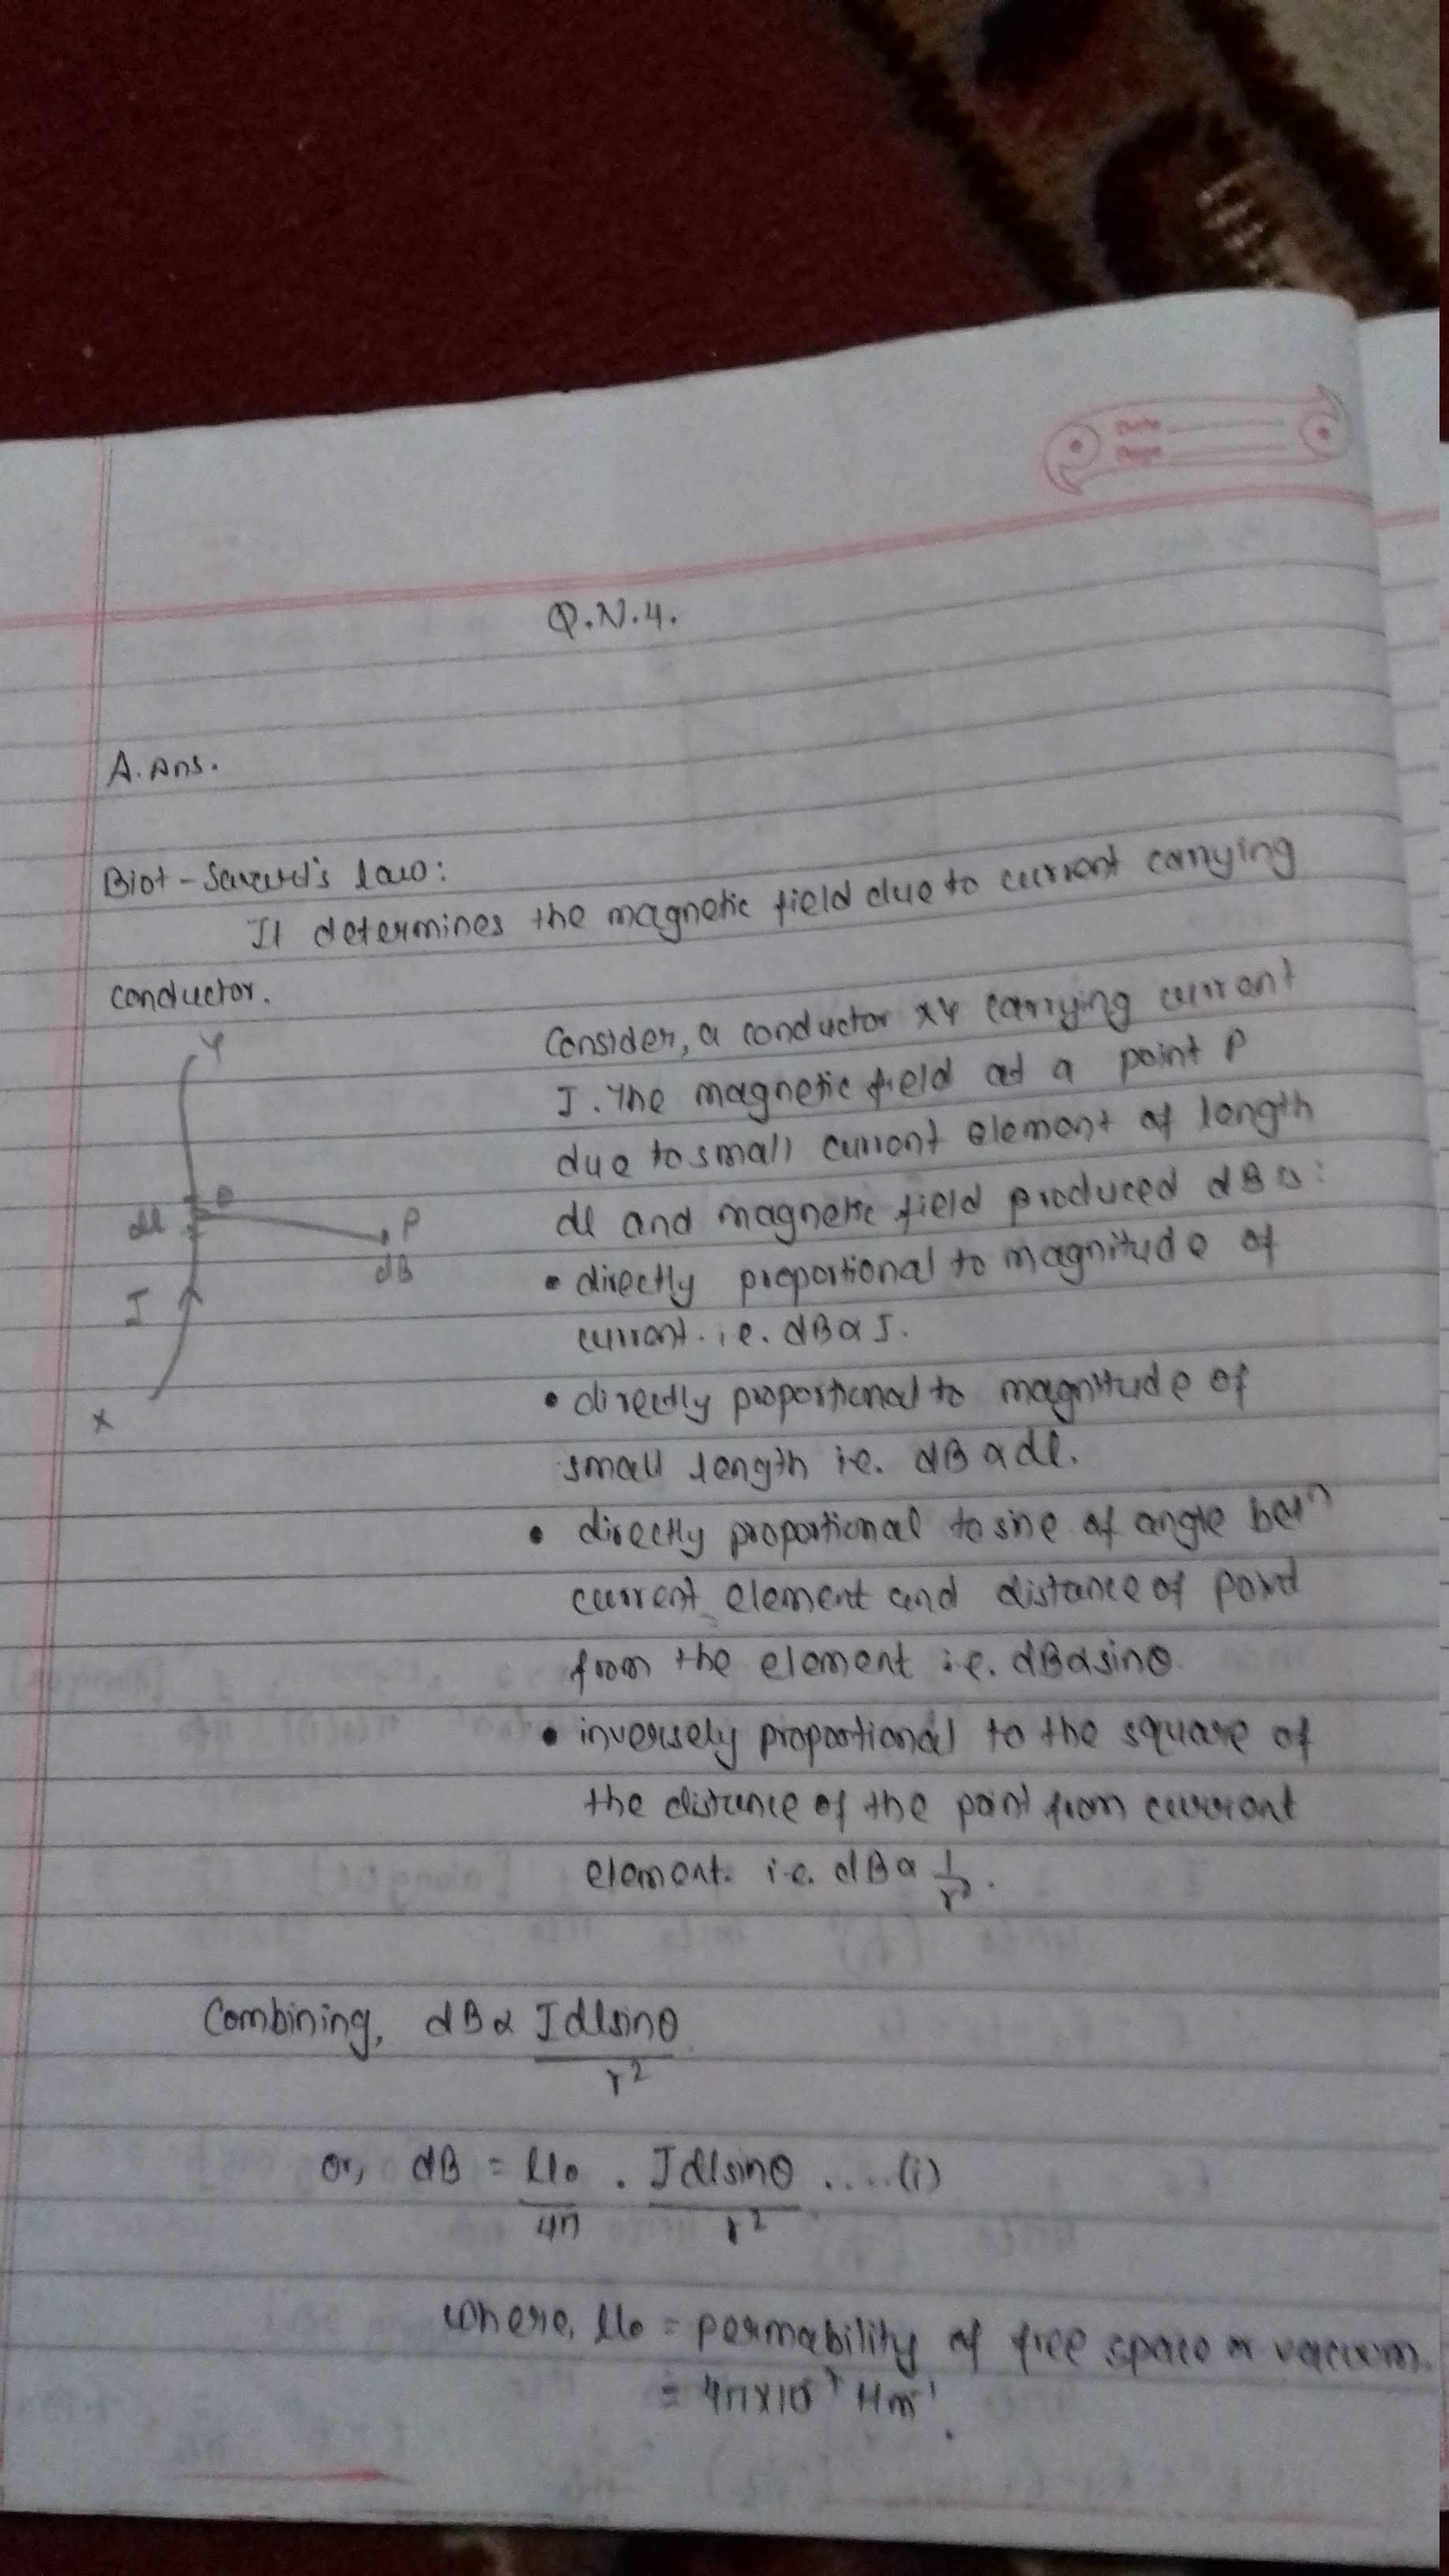 Date
Page
Q.N.4.
A. Ans.
Biot-Savart's law:
It determines the magnetic field due to current carrying
conductor.
Y
θ
dl
P
dB
I
X
Consider, a conductor XY carrying current
I. The magnetic field at a point P
due to small current element of length
dl and magnetic field produced dB is:
• directly proportional to magnitude of
current. i.e. dB α I.
• directly proportional to magnitude of
small length i.e. dB α dl.
• directly proportional to sine of angle betn
current element and distance of point
from the element i.e. dBαsinθ
• inversely proportional to the square of
the distance of the point from current
element. i.e. dBα 1/r².
Combining, dBα Idlsinθ/r²
or, dB = μ₀/4π . Idlsinθ/r² .....(i)
where, μ₀ = permability of free space or vacuum.
= 4π×10⁻⁷ Hm⁻¹.